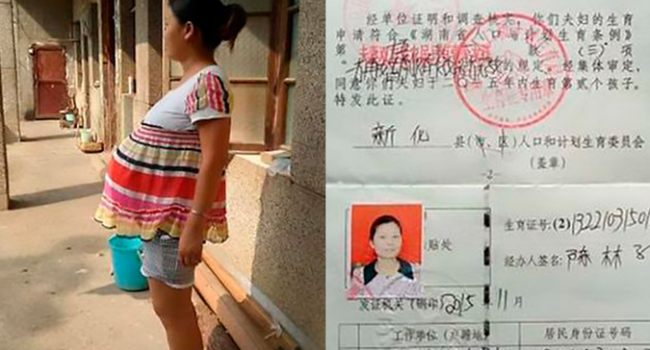 经单位证明和调查核实，你们夫妇的生育
申请符合《湖南省人口与计划生育条例》
第
款（三）项
的规定。经集体审定，
同意你们夫妇于二〇一五年内生育第贰个孩子。
特发此证。
新化县（市、区）人口和计划生育委员会
（签章）
-2-
生育证号：(2)
贴处
经办人签名：陈林
发证机关（钢印）2015年11月
工作单位（户籍地）
居民身份证号码